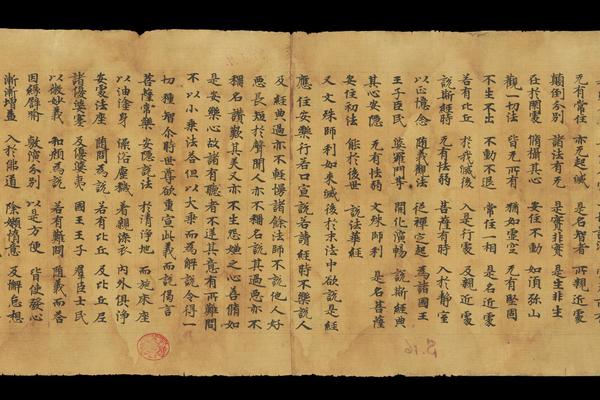 无有常住 亦无起滅 是名智者 所親近處
顛倒分別 諸法有无 是實非實 是生非生
在於閑處 脩攝其心 安住不動 如須弥山
觀一切法 皆无所有 猶如虛空 无有堅固
不生不出 不動不退 常住一相 是名近處
若有比丘 於我滅後 入是行處 及親近處
說斯經時 无有怯弱 菩薩有時 入於靜室
以正憶念 隨義觀法 從禪定起 為諸國王
王子臣民 婆羅門等 開化演暢 說斯經典
其心安隱 无有怯弱 文殊師利 是名菩薩
安住初法 能於後世 說法華經
又文殊師利如来滅後於末法中欲說是經
應住安樂行若口宣說若讀經時不樂說人
及經典過亦不輕慢諸餘法師不說他人好
惡長短於聲聞人亦不稱名說其過惡亦不
稱名讚歎其美又亦不生怨嫌之心善脩如
是安樂心故諸有聽者不逆其意有所難問
不以小乘法答但以大乘而為解說令得一
切種智尒時世尊欲重宣此義而說偈言
菩薩常樂 安隱說法 於清淨地 而施床座
以油塗身 澡浴塵穢 着新淨衣 內外俱淨
安處法座 隨問為說 若有比丘 及比丘尼
諸優婆塞 及優婆夷 國王王子 羣臣士民
以微妙義 和顏為說 若有難問 隨義而荅
因緣譬喻 敷演分別 以是方便 皆使發心
漸漸增益 入於佛道 除嬾惰意 及懈怠想
S.16